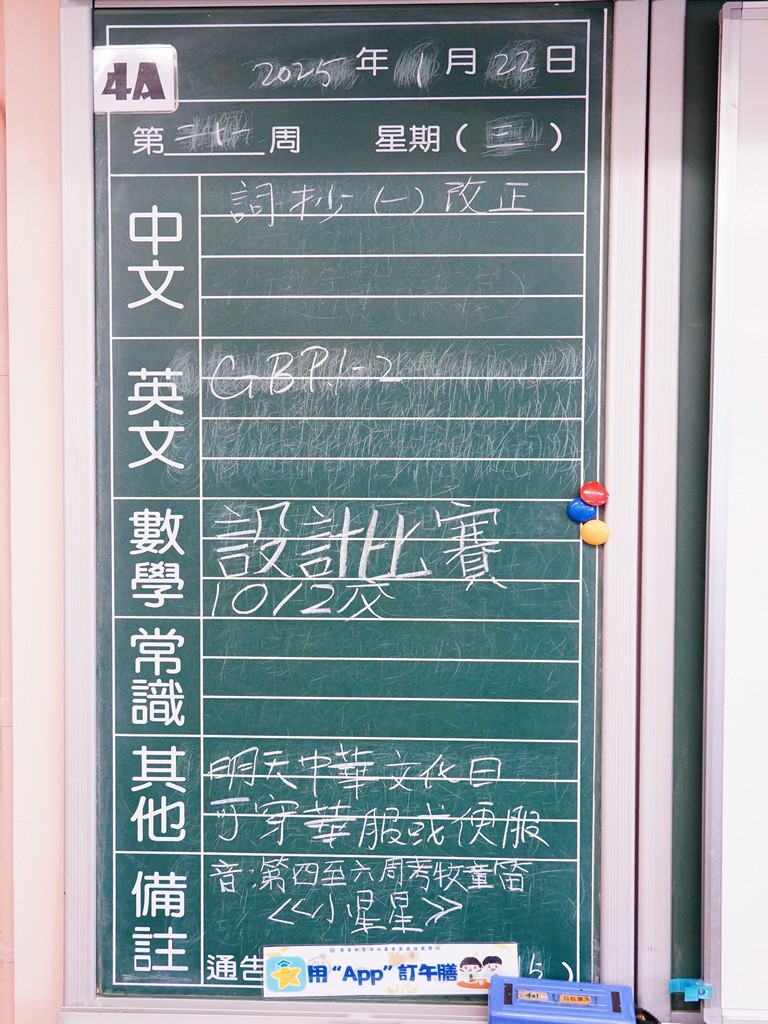 4A
2025年1月22日
第 周 星期(三)
中文
詞抄(一)改正
英文
GBP.1-2
數學
設計比賽
10/2交
常識
其他
明天中華文化日
可穿華服或便服
備註
音:第四至六周考牧童笛
《小星星》
通告 5)
用“App”訂午膳